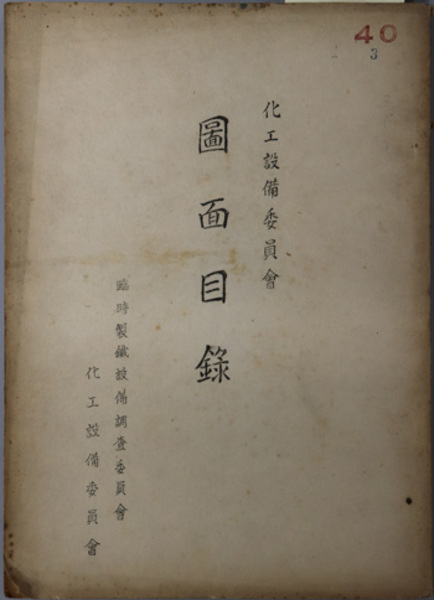 40
3
化工設備委員會
圖面目錄
臨時製鐵設備調查委員會
化工設備委員會